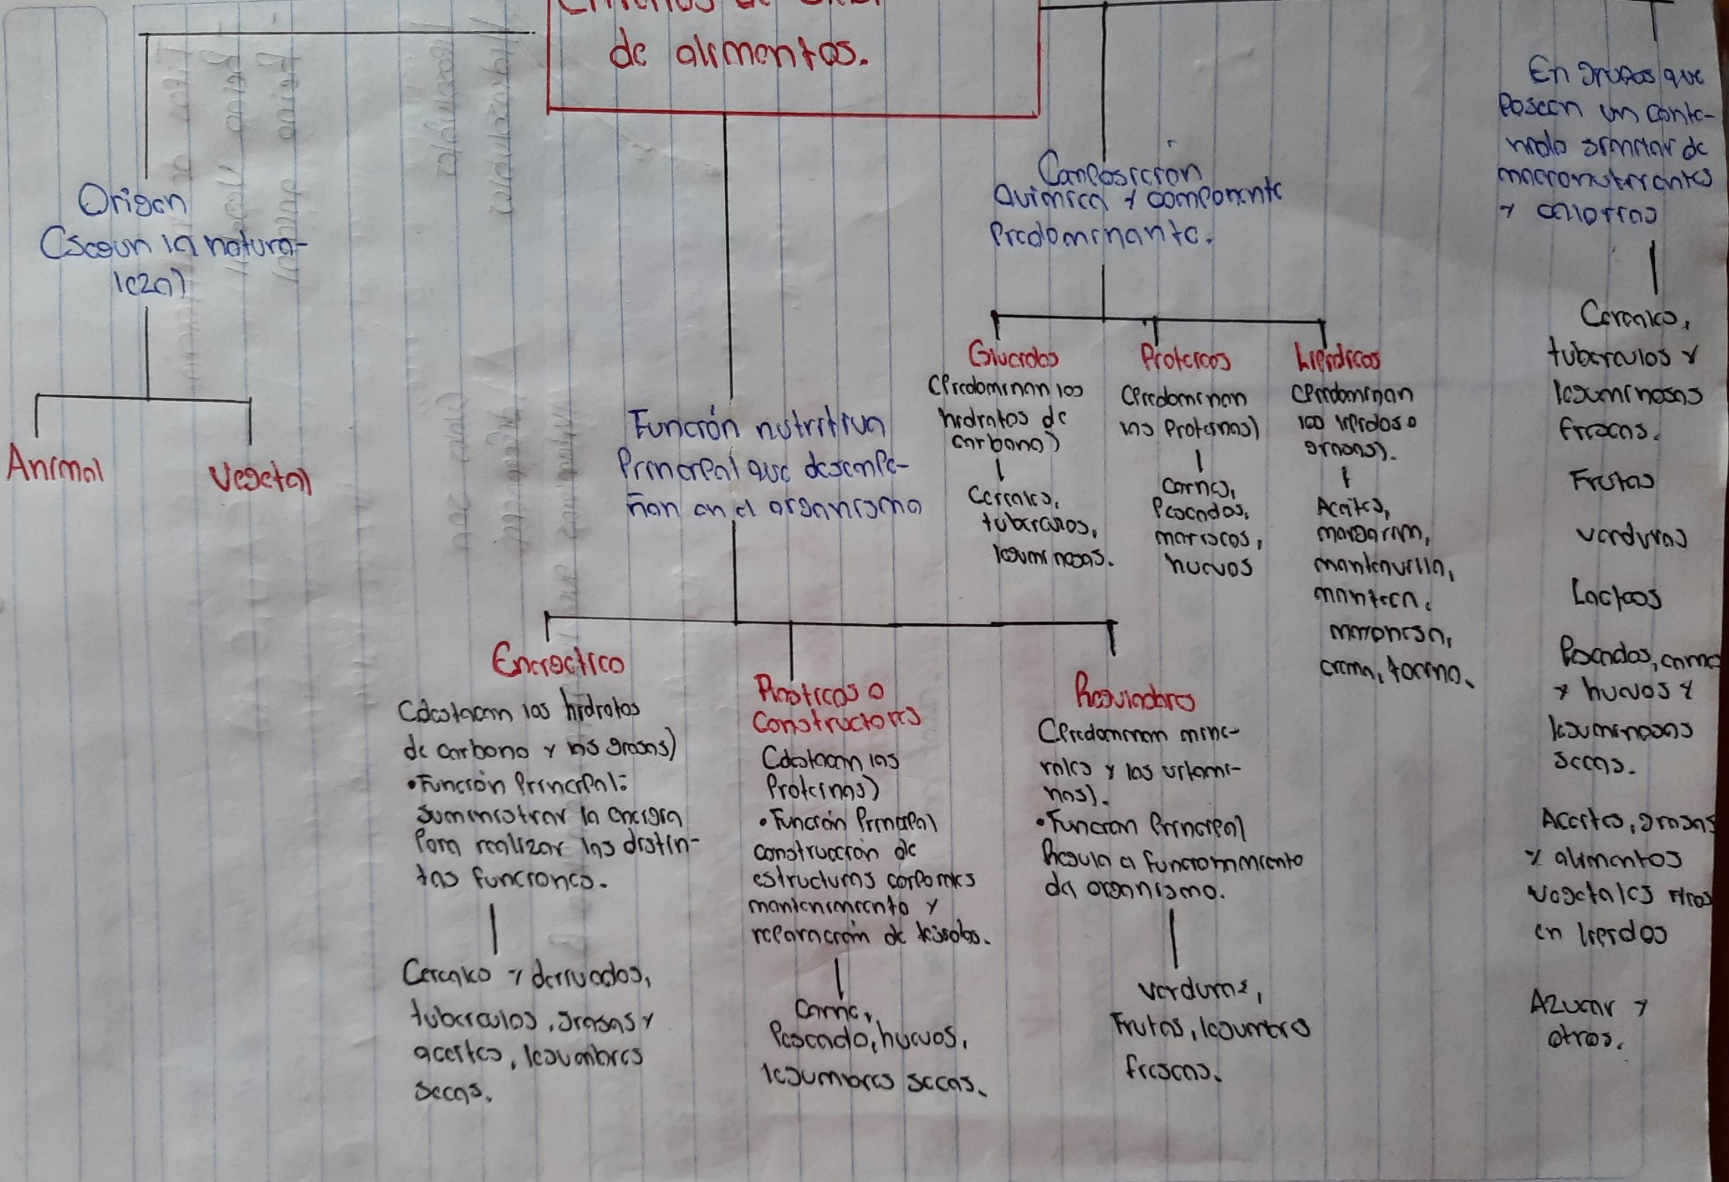 de alimentos.
Origen
(Según la natura-
leza)
Animal
Vegetal
Función nutritiva
Principal que desempe-
ñan en el organismo
Energético
(destacan los hidratos
de carbono y las grasas)
•Función Principal:
Suministrar la energía
Para realizar las distin-
tas funciones.
Cereales y derivados,
tubérculos, grasas y
aceites, legumbres
secas.
Plásticos o
Constructores
(destacan las
Proteínas)
•Función Principal
construcción de
estructuras corporales
mantenimiento y
reparación de tejidos.
Carne,
Pescado, huevos,
legumbres secas.
Reguladores
(Predominan mine-
rales y las vitami-
nas).
•Función Principal
Regula el funcionamiento
del organismo.
Verduras,
Frutas, legumbres
frescas.
Composición
Química y componente
Predominante.
Glúcidos
(Predominan los
hidratos de
carbono)
Cereales,
tubérculos,
leguminosas.
Proteicos
(Predominan
las Proteínas)
Carnes,
Pescados,
mariscos,
huevos
Lipídicos
(Predominan
los lípidos o
grasas).
Aceites,
margarina,
mantequilla,
manteca,
mayonesa,
crema, tocino.
En grupos que
Poseen un conte-
nido similar de
macronutrientes
y calorías
Cereales,
tubérculos y
leguminosas
frescas.
Frutas
verduras
Lácteos
Pescados, carnes
y huevos y
leguminosas
secas.
Aceites, grasas
y alimentos
vegetales ricos
en lípidos
Azúcar y
otros.